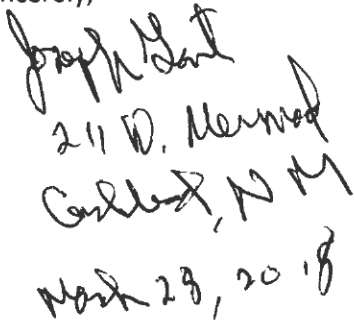 ncerely,
Joseph Gant
211 W. Mermod
Carlsbad, NM
March 28, 2018